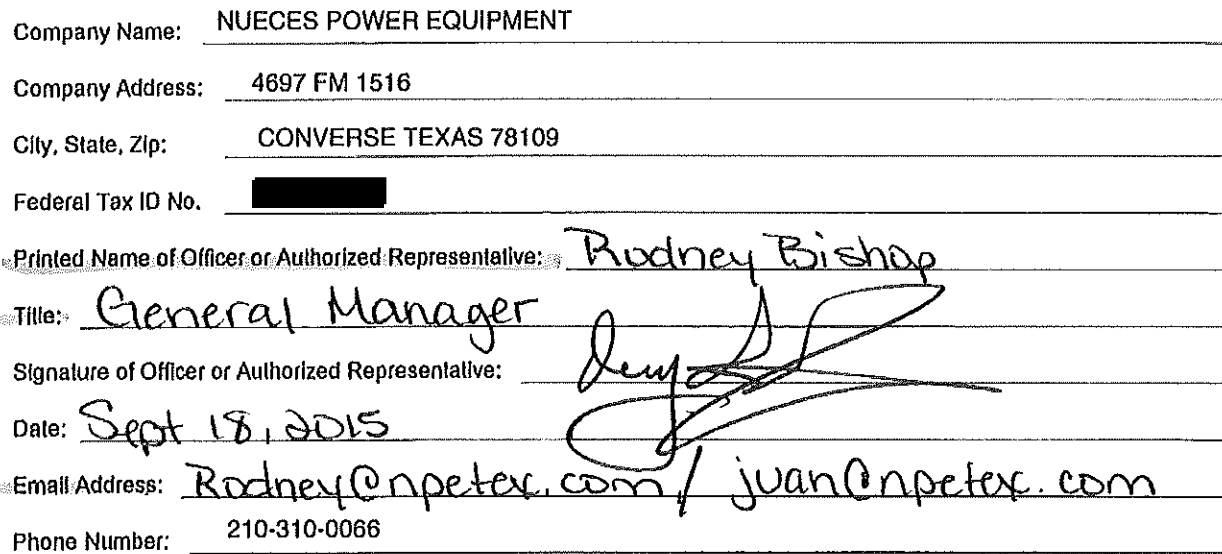 Company Name: NUECES POWER EQUIPMENT
Company Address: 4697 FM 1516
City, State, Zip: CONVERSE TEXAS 78109
Federal Tax ID No.
Printed Name of Officer or Authorized Representative: Rodney Bishop
Title: General Manager
Signature of Officer or Authorized Representative:
Date: Sept 18, 2015
Email Address: Rodney@npetex.com / juan@npetex.com
Phone Number: 210-310-0066